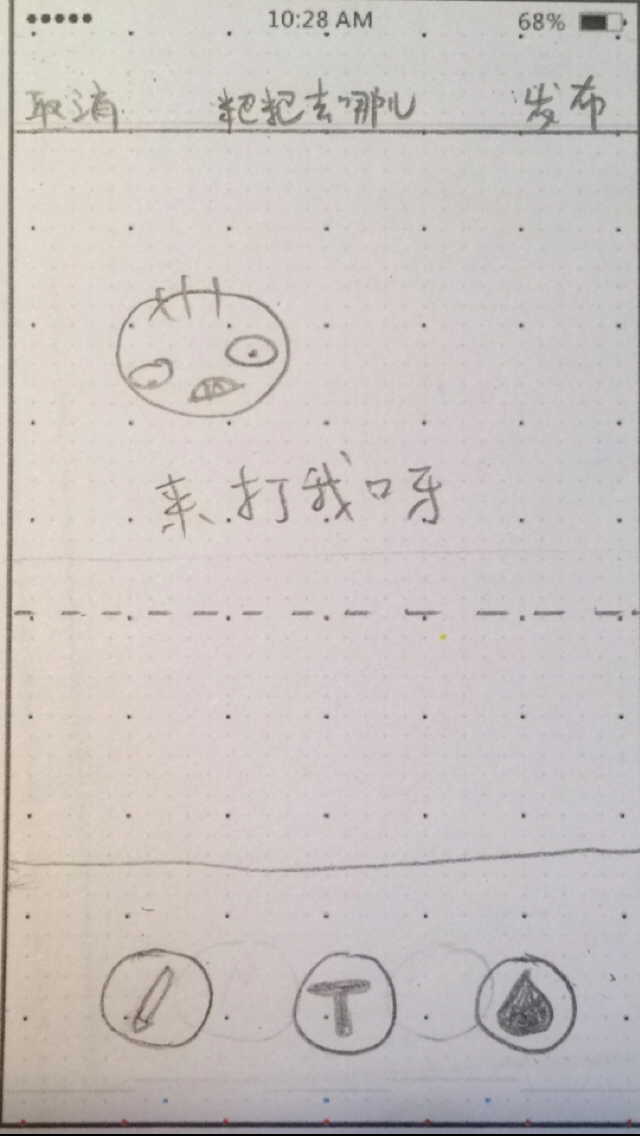 10:28 AM 68%
取消 粑粑去哪儿 发布
来打我呀
T